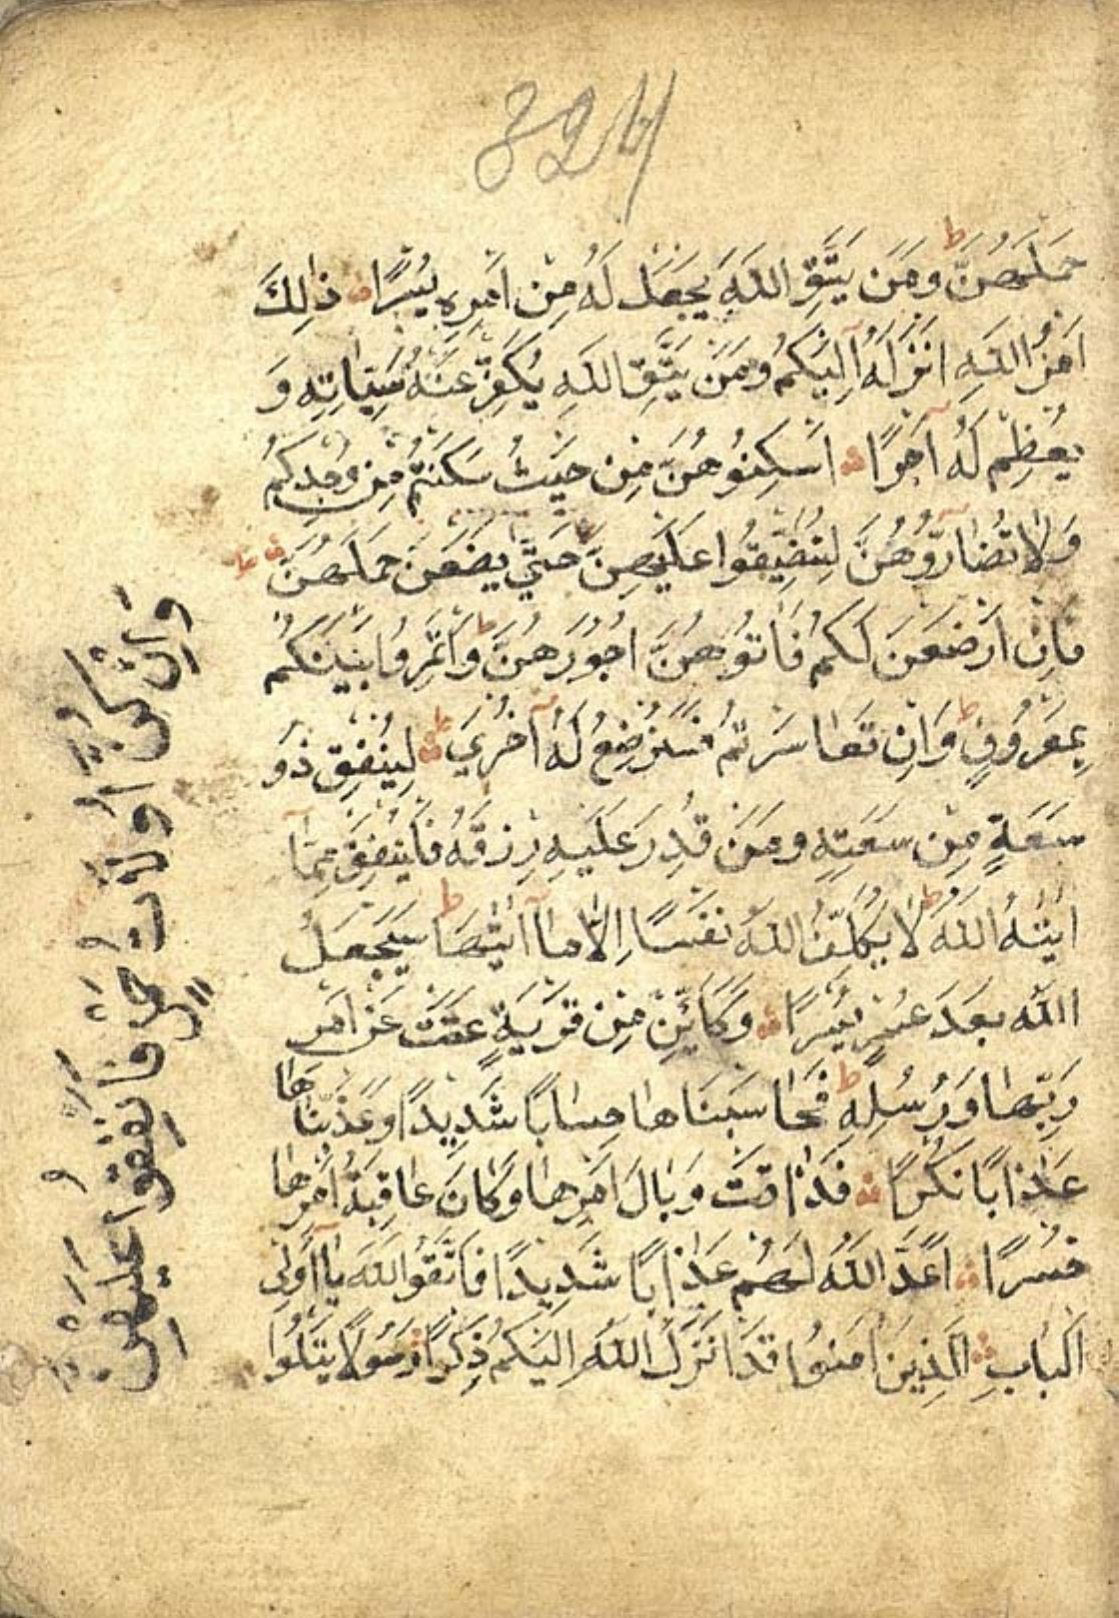 324
حَمْلَهُنَّ ط وَمَنْ يَتَّقِ اللّٰهَ يَجْعَلْ لَهُ مِنْ اَمْرِهِ يُسْرًا ذٰلِكَ
اَمْرُ اللّٰهِ اَنْزَلَهُ اِلَيْكُمْ وَمَنْ يَتَّقِ اللّٰهَ يُكَفِّرْ عَنْهُ سَيِّاٰتِهِ وَ
يُعْظِمْ لَهُ اَجْرًا اَسْكِنُوهُنَّ مِنْ حَيْثُ سَكَنْتُمْ مِنْ وُجْدِكُمْ
وَلَا تُضَارُّوهُنَّ لِتُضَيِّقُوا عَلَيْهِنَّ حَتَّى يَضَعْنَ حَمْلَهُنَّ
فَاِنْ اَرْضَعْنَ لَكُمْ فَاٰتُوهُنَّ اُجُورَهُنَّ ط وَأْتَمِرُوا بَيْنَكُمْ
بِمَعْرُوفٍ ط وَاِنْ تَعَاسَرْتُمْ فَسَتُرْضِعُ لَهُ اُخْرٰى ط لِيُنْفِقْ ذُو
سَعَةٍ مِنْ سَعَتِهِ وَمَنْ قُدِرَ عَلَيْهِ رِزْقُهُ فَلْيُنْفِقْ مِمَّا
اٰتٰيهُ اللّٰهُ ط لَا يُكَلِّفُ اللّٰهُ نَفْسًا اِلَّا مَا اٰتٰيهَا ط سَيَجْعَلُ
اللّٰهُ بَعْدَ عُسْرٍ يُسْرًا وَكَاَيِّنْ مِنْ قَرْيَةٍ عَتَتْ عَنْ اَمْرِ
رَبِّهَا وَرُسُلِهِ ط فَحَاسَبْنَاهَا حِسَابًا شَدِيدًا وَعَذَّبْنَاهَا
عَذَابًا نُكْرًا فَذَاقَتْ وَبَالَ اَمْرِهَا وَكَانَ عَاقِبَةُ اَمْرِهَا
خُسْرًا اَعَدَّ اللّٰهُ لَهُمْ عَذَابًا شَدِيدًا فَاتَّقُوا اللّٰهَ يَا اُولِى
الْبَابِ الَّذِينَ اٰمَنُوا قَدْ اَنْزَلَ اللّٰهُ اِلَيْكُمْ ذِكْرًا رَسُولًا يَتْلُوا
وَاِنْ كُنَّ اُولَاتِ حَمْلٍ فَاَنْفِقُوا عَلَيْهِنَّ